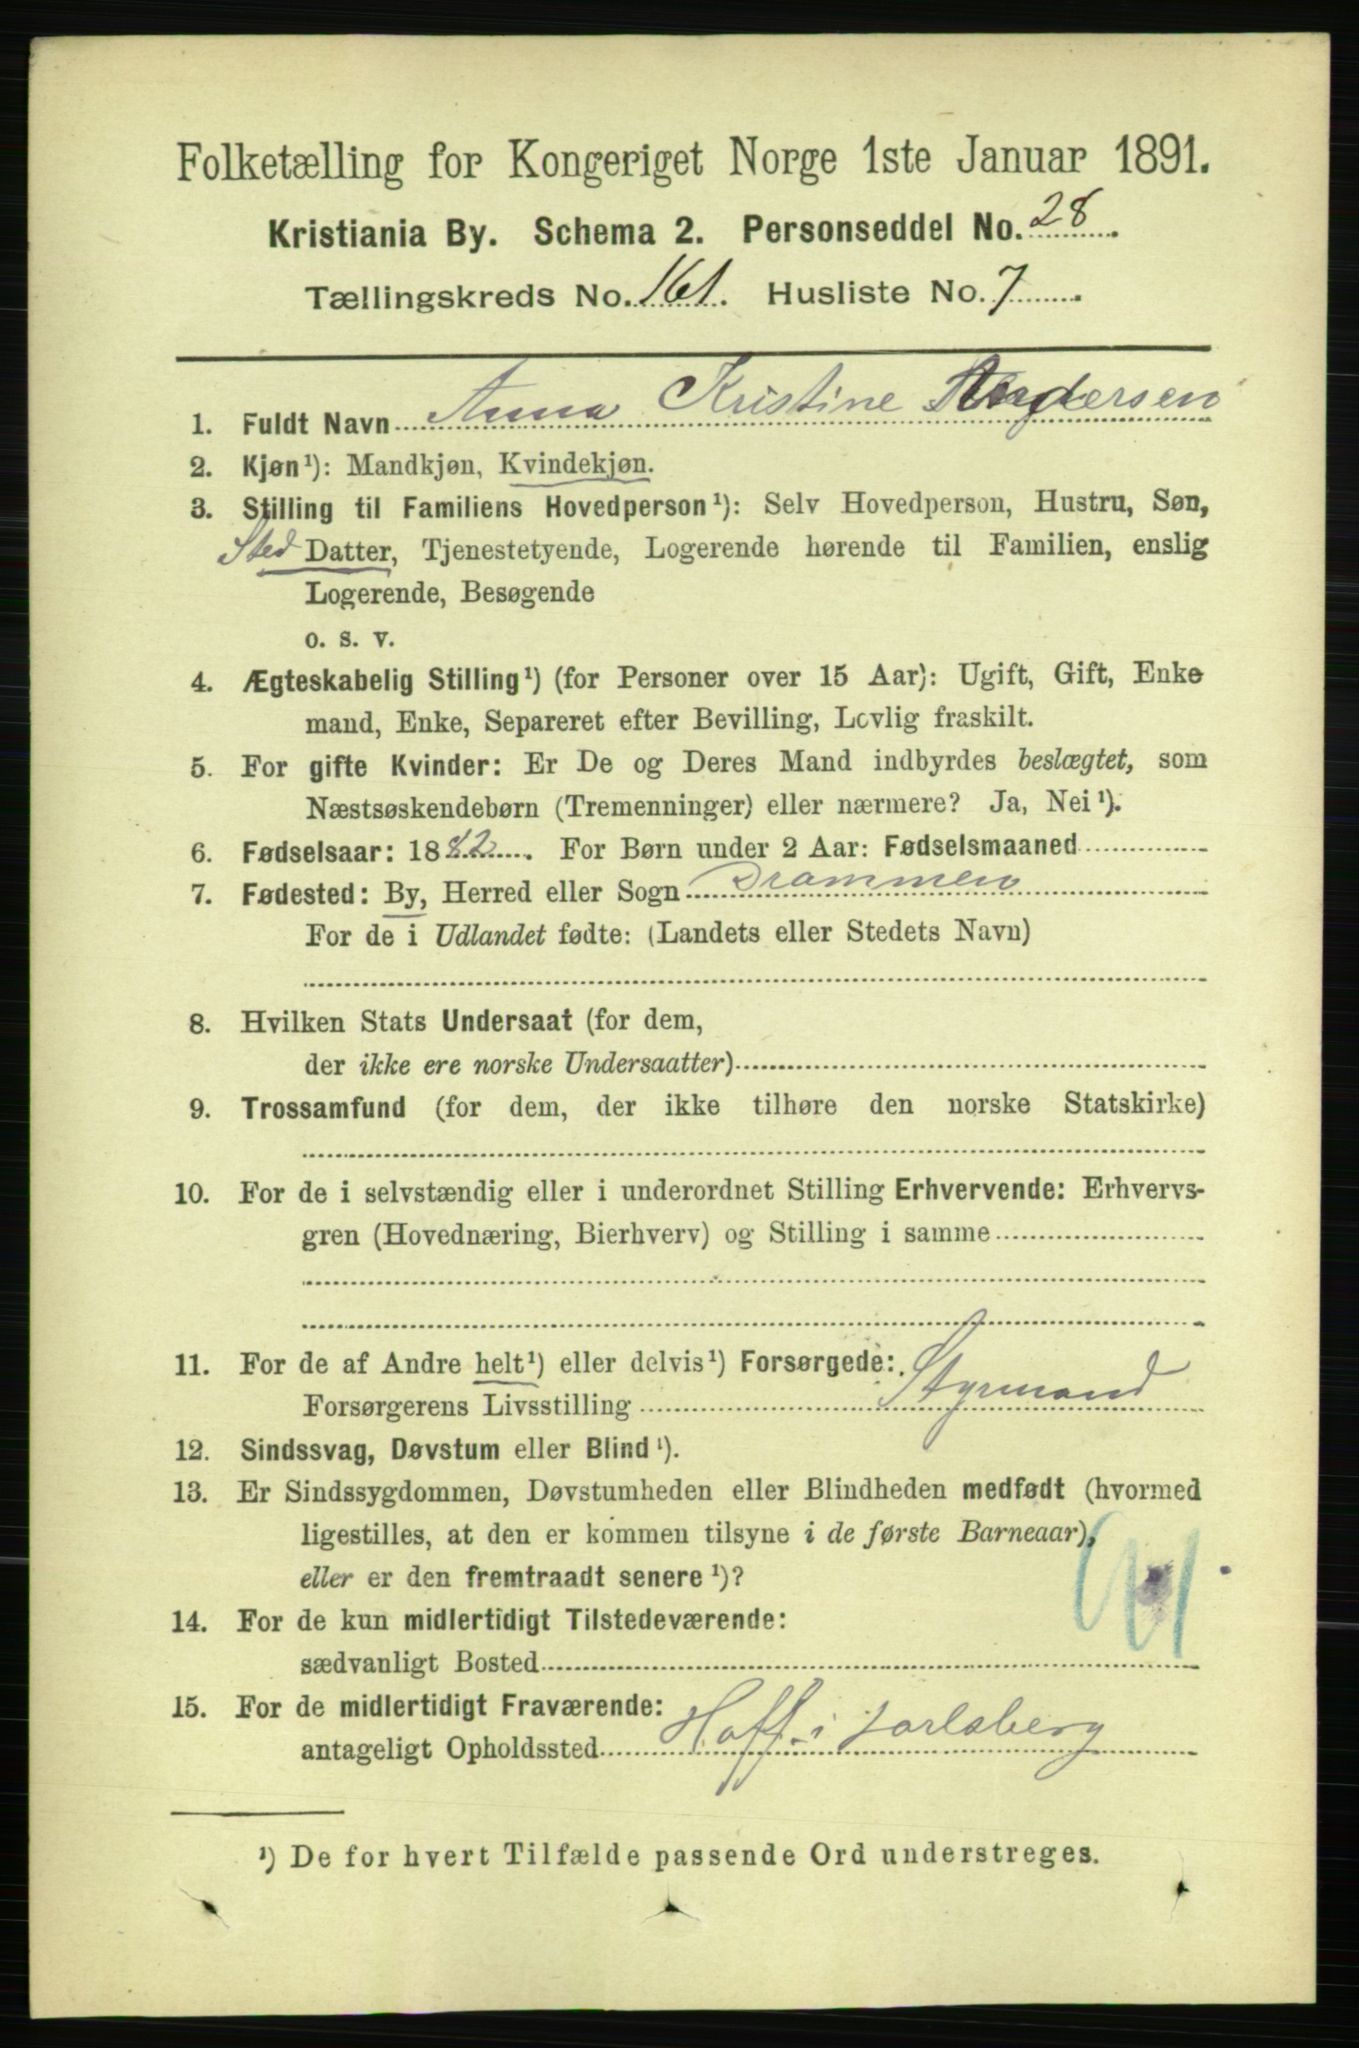 Folketælling for Kongeriget Norge 1ste Januar 1891.
Kristiania By. Schema 2. Personseddel No. 28.
Tællingskreds No. 161. Husliste No. 7.
1. Fuldt Navn Anna Kristine Andersen
2. Kjøn¹): Mandkjøn, Kvindekjøn.
3. Stilling til Familiens Hovedperson¹): Selv Hovedperson, Hustru, Søn,
Sted Datter, Tjenestetyende, Logerende hørende til Familien, enslig
Logerende, Besøgende
o. s. v.
4. Ægteskabelig Stilling¹) (for Personer over 15 Aar): Ugift, Gift, Enke
mand, Enke, Separeret efter Bevilling, Lovlig fraskilt.
5. For gifte Kvinder: Er De og Deres Mand indbyrdes beslægtet, som
Næstsøskendebørn (Tremenninger) eller nærmere? Ja, Nei¹).
6. Fødselsaar: 1882. For Børn under 2 Aar: Fødselsmaaned
7. Fødested: By, Herred eller Sogn Drammen
For de i Udlandet fødte: (Landets eller Stedets Navn)
8. Hvilken Stats Undersaat (for dem,
der ikke ere norske Undersaatter)
9. Trossamfund (for dem, der ikke tilhøre den norske Statskirke)
10. For de i selvstændig eller i underordnet Stilling Erhvervende: Erhvervs-
gren (Hovednæring, Bierhverv) og Stilling i samme
11. For de af Andre helt¹) eller delvis¹) Forsørgede:
Forsørgerens Livsstilling Styrmand
12. Sindssvag, Døvstum eller Blind¹).
13. Er Sindssygdommen, Døvstumheden eller Blindheden medfødt (hvormed
ligestilles, at den er kommen tilsyne i de første Barneaar),
eller er den fremtraadt senere¹)?
14. For de kun midlertidigt Tilstedeværende:
sædvanligt Bosted
15. For de midlertidigt Fraværende:
antageligt Opholdssted Hoff i Jarlsberg
¹) De for hvert Tilfælde passende Ord understreges.